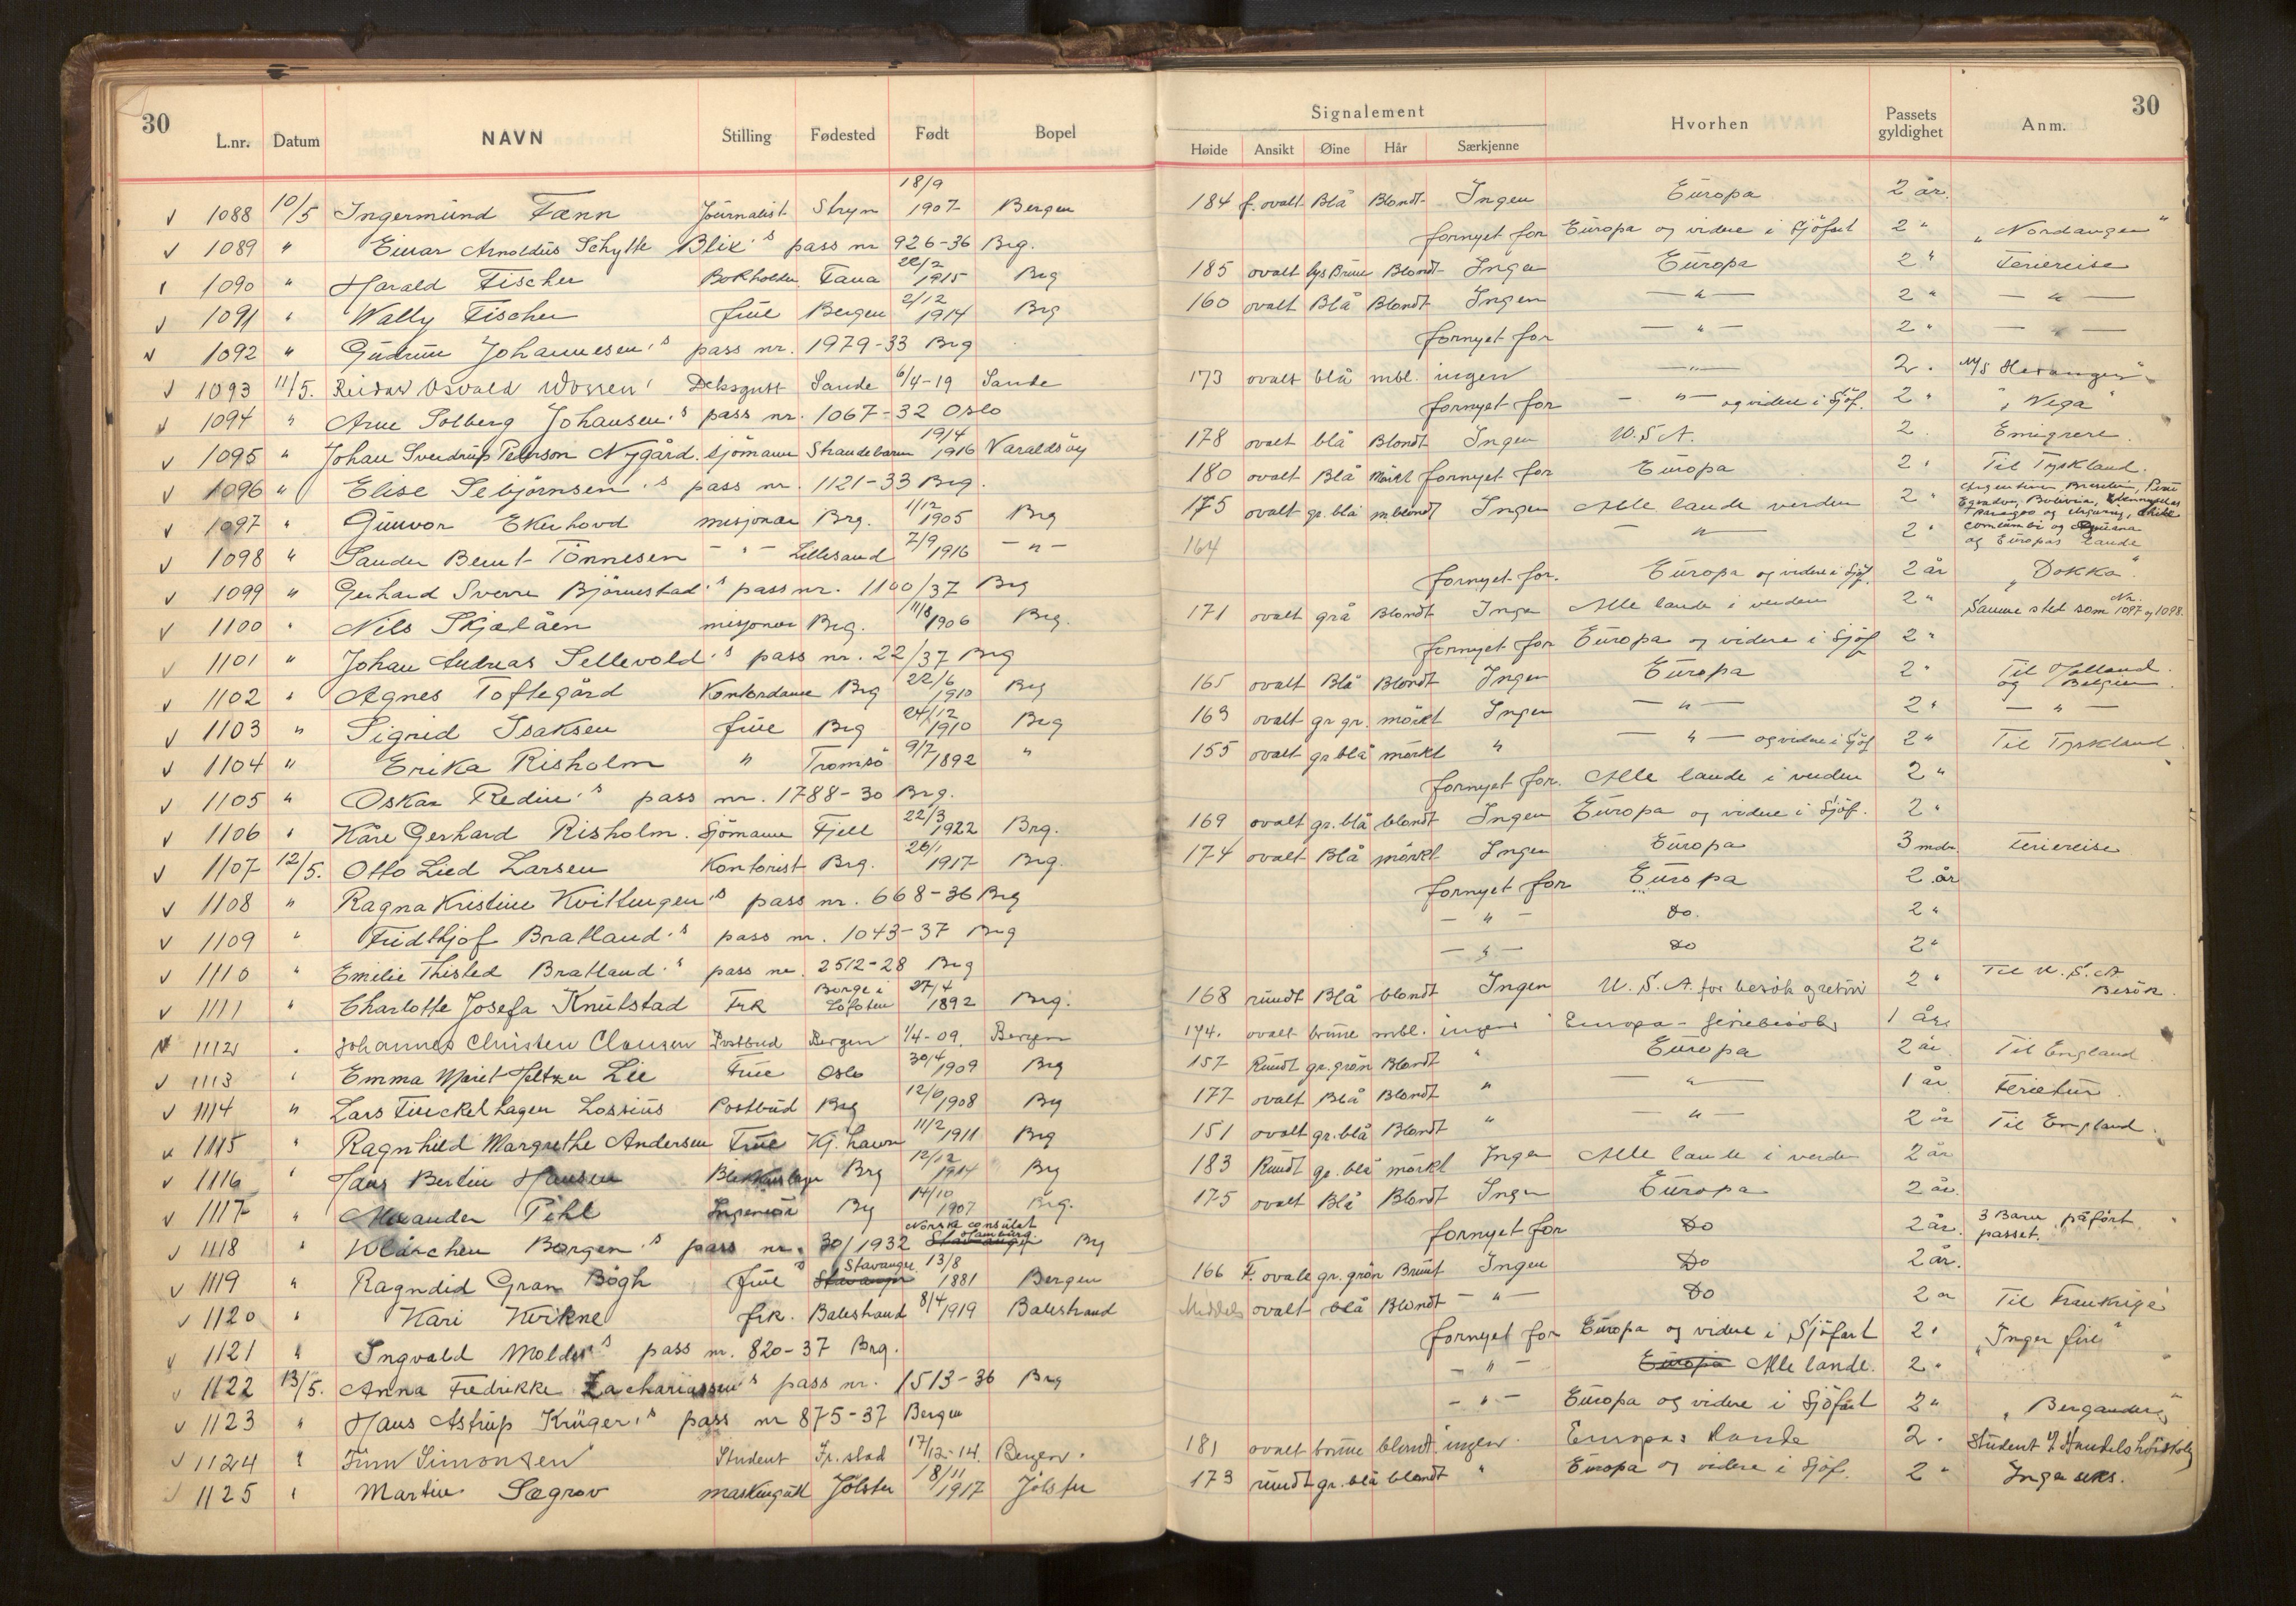 30
L.nr. Datum NAVN Stilling Fødested Født Bopel
Signalement
Høide Ansikt Øine Hår Særkjenne Hvorhen Passets gyldighet Anm.
30
1088 10/5 Ingermund Fænn Journalist Stryn 18/9 1907 Bergen 184 f. ovalt Blå Blondt Ingen Europa 2 år.
1089 " Einar Arnoldus Schytte Blix's pass nr 926-36 Brg. fornyet for Europa og videre i Sjöfart 2 " "Nordanger"
1090 " Harald Fischer Bokholder Fana 22/2 1915 Brg 185 ovalt lys Brune Blondt Ingen Europa 2 " Feriereise
1091 " Wally Fischer frue Bergen 2/12 1914 Brg 160 ovalt Blå Blondt Ingen — " — 2 " — " —
1092 " Gudrun Johannesen's pass nr. 1979-33 Brg fornyet for — " — 2 " — " —
1093 11/5. Reidar Osvald Dekksgutt Sande 6/4-19 Sande 173 ovalt blå mbl. ingen — " — 2 . M/S
1094 " Arne Solberg Johansen's pass nr. 1067-32 Oslo fornyet for — " — og videre i Sjöf. 2 " "Vega"
1095 " Johan Sverdrup Nygård. sjömann Strandebarm 19/4 1916 Varaldsöy 178 ovalt blå Blondt Ingen U.S.A. 2 . Emigrere.
1096 " Elise Sebjörnsen's pass nr. 1121-33 Brg. 180 ovalt Blå Mörkt fornyet for Europa 2 " Til Tyskland.
1097 " Gunvor Ekerhovd misjonær Brg. 1/12 1905 Brg 175 ovalt gr. blå m. blondt Ingen Alle lande verden 2 " Argentina, Brasilien, Peru
Bolivia,
Paragoo og Chile
1098 " Sander Bernt Tönnesen — " — Lillesand 7/9 1916 — " — 164 — " — 2 " og
og Europas lande
1099 " Gerhard Sverre Björnestad's pass nr. 1100/37 Brg fornyet for. Europa og videre i Sjöf. 2 år "Dokka".
1100 " Nils Skjælåen misjonær Brg. 11/8 1906 Brg. 171 ovalt grå Blondt Ingen Alle lande i verden 2 " Samme sted som Nr. 1097 og 1098.
1101 " Johan Andreas Sellevold's pass nr. 22/37 Brg fornyet for Europa og videre i Sjöf 2 "
1102 " Agnes Toftegård Kontordame Brg 22/6 1910 Brg 165 ovalt Blå Blondt Ingen Europa 2 " Til Holland.
og Belgien.
1103 " Sigrid Isaksen frue Brg 24/12 1910 Brg 163 ovalt gr gr. mörkt Ingen — " — 2 " — " —
1104 " Erika Risholm " Tromsö 9/7 1892 " 155 ovalt gr blå mörkt " — " — og videre i Sjöf 2 " Til Tyskland.
1105 " Oskar Redin's pass nr. 1788-30 Brg. fornyet for. Alle lande i verden 2 "
1106 " Kåre Gerhard Risholm. Sjömann Fjell 22/3 1922 Brg. 169 ovalt gr. blå blondt Ingen Europa og videre i Sjöf. 2 "
1107 12/5. Otto Lied Larsen Kontorist Brg. 26/1 1917 Brg. 174 ovalt Blå mörkt Ingen Europa 3 mdr. Feriereise
1108 " Ragna Kristine Kvittingen's pass nr. 668-36 Brg fornyet for Europa 2 år
1109 " Fridthjof Bratland's pass nr. 1043-37 Brg — " — Do. 2 "
1110 " Emilie Thisted Bratland's pass nr. 2512-28 Brg — " — Do 2 "
1111 " Charlotte Josefa Knutstad Frk Borge i Lofoten 27/4 1892 Brg. 168 rundt Blå blondt Ingen U.S.A. for besök og retur 2 " Til U.S.A.
Besök.
1112 " Johannes Christen Clausen Postbud Bergen 1/4-09. Bergen 174. ovalt brune mbl. ingen Europa - feriebesök 1 år.
1113 " Emma Lie Frue Oslo 30/4 1909 Brg 157 Rundt gr. grön Blondt " Europa 2 år Til England
1114 " Lars Finckelhagen Lossius Postbud Brg 12/6 1908 Brg 177 ovalt Blå Blondt " — " — 1 år Ferietur.
1115 " Ragnhild Margrethe Andersen Frue Kj. havn 11/2 1911 Brg 151 ovalt gr. blå Blondt " — " — 2 år Til England.
1116 " Hans Bertin Hansen Blikkenslager Brg 12/12 1914 Brg 183 Rundt gr. blå mörkt Ingen Alle lande i verden 2 år
1117 " Alexander Pihl Ingeniör Brg 14/10 1907 Brg. 175 ovalt Blå Blondt Ingen Europa 2 år.
1118 " Borgen's pass nr. 30/1932 Norsk consulat Hamburg. Stavanger Brg fornyet for Do 2 år. 3 Barn påfört
passet.
1119 " Ragndid Gran Bögh frue Stavanger Stavanger 13/8 1881 Bergen 166 F. ovale gr. grön Brunt Ingen Do 2 år.
1120 " Kari Kvikne frk. Balestrand 8/4 1919 Balestrand Middels ovalt blå Blondt — " — Do 2 år Til Frankrige
1121 " Ingvald Molder's pass nr. 820-37 Brg. fornyet for Europa og videre i Sjöfart 2 " "Inger fire"
1122 13/5. Anna Fredrikke Zachariassen's pass nr. 1513-36 Brg — " — Europa Alle lande. 2 "
1123 " Hans Astrup Krüger's pass nr 875-37 Bergen — " — Europa og videre i Sjöfart 2 " "Berganders"
1124 " Finn Simonsen Student Fr. stad 17/12-14. Bergen. 181 ovalt brune blondt ingen. Europas lande 2 . Student v/ Handelshöiskole
1125 " Martin Sægrov maskingutt Jölster 18/11 1917 Jölster 173 rundt gr. blå blondt " Europa og videre i Sjöf. 2 "